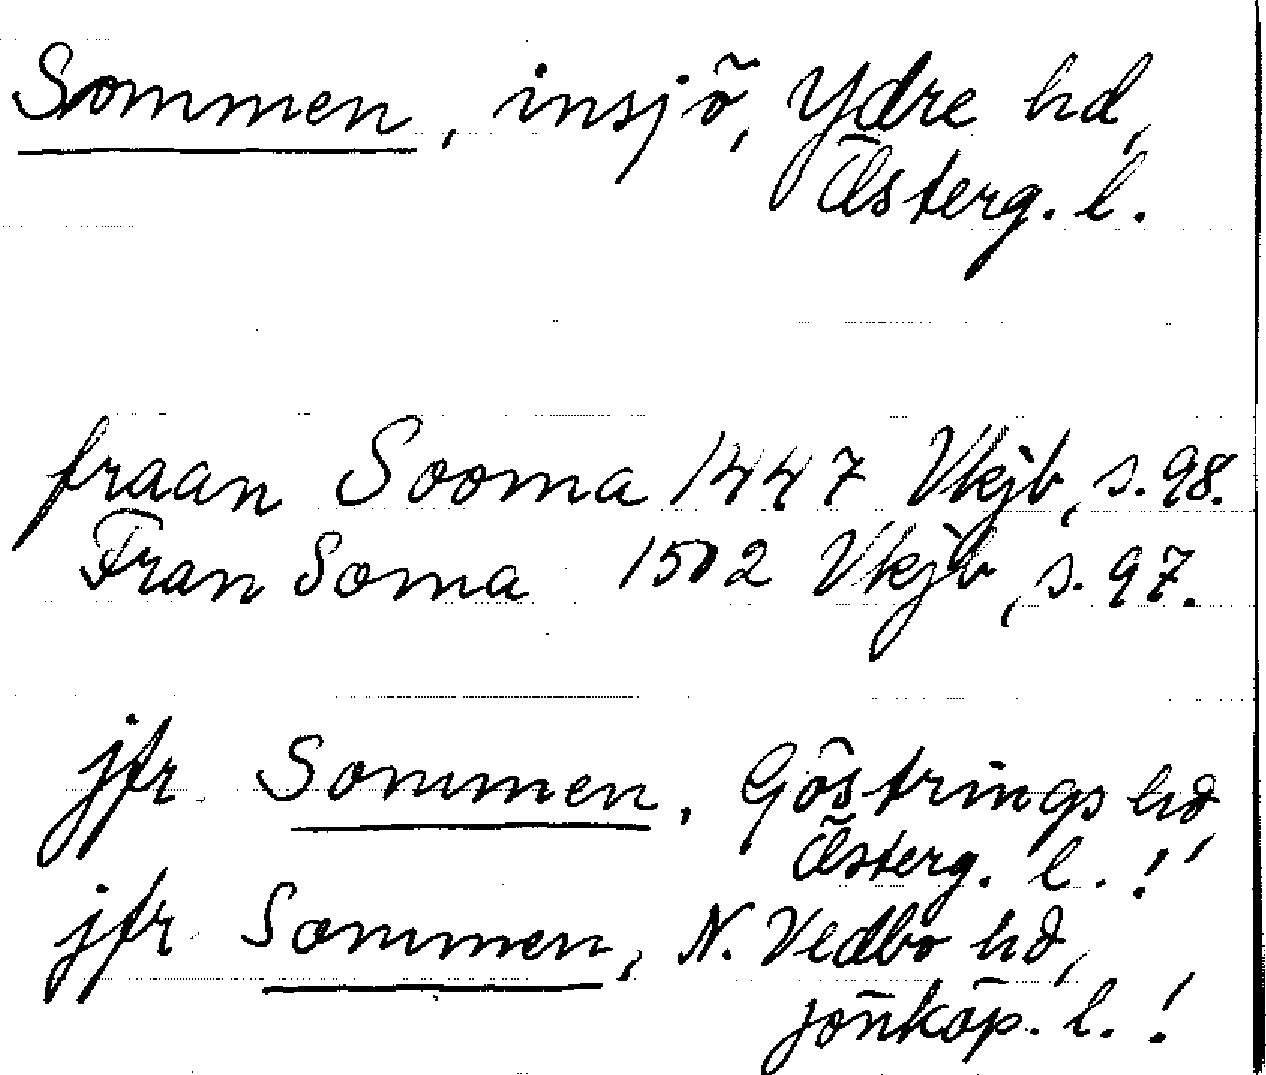 Sommen, insjö, Ydre hd,
Österg. l.
fraan Sooma 1447 Vkjb, s. 98.
Fran Soma 1502 Vkjb, s. 97.
jfr Sommen, Göstrings hd,
Österg. l. !
jfr Sommen, N. Vedbo hd,
Jönköp. l. !